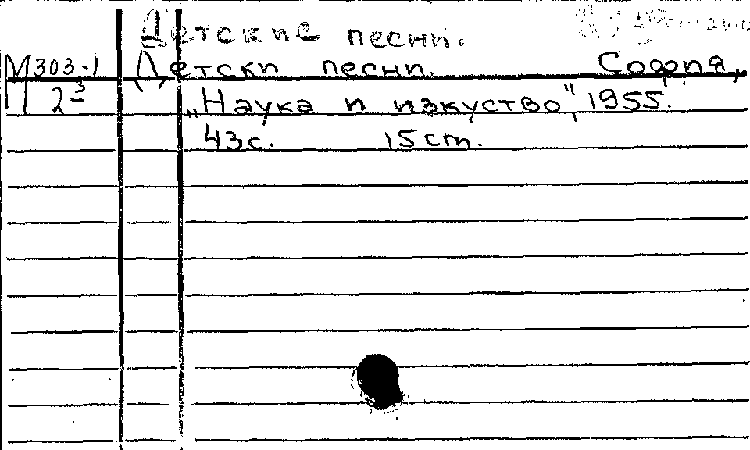 Детские песни.
М 303-1 Детски песни. София,
2-3 „Наука и изкуство", 1955.
43с. 15 cm.